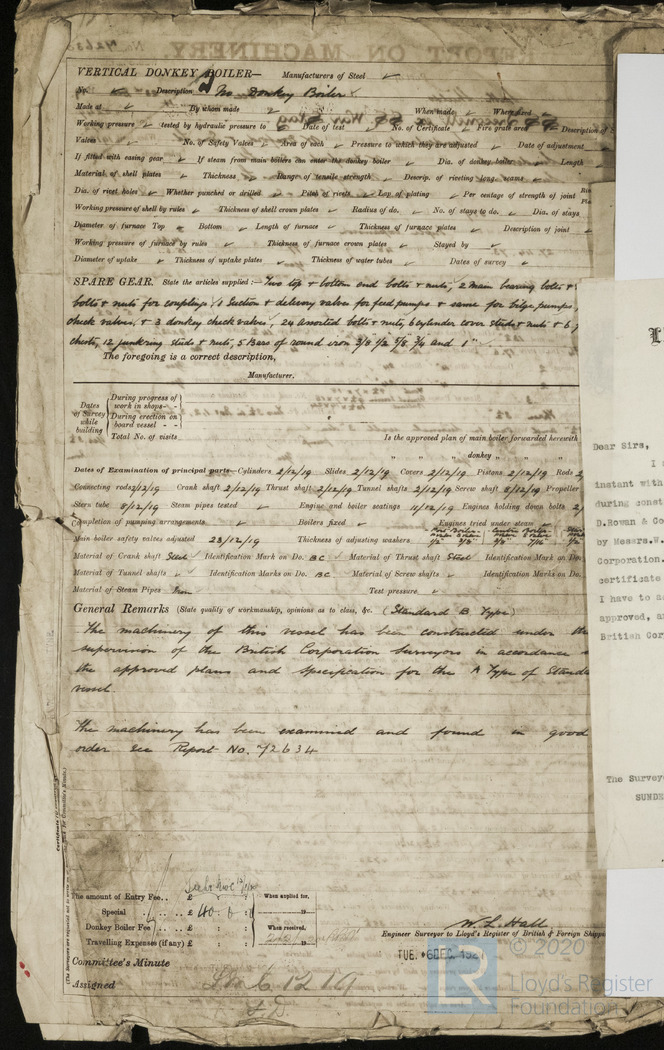 VERTICAL DONKEY BOILER— Manufacturers of Steel
No. Description No Donkey Boiler
Made at By whom made When made Where fixed
Working pressure tested by hydraulic pressure to Date of test No. of Certificate Fire grate area Description of S
Valves No. of Safety Valves Area of each Pressure to which they are adjusted Date of adjustment
If fitted with easing gear If steam from main boilers can enter the donkey boiler Dia. of donkey boiler Length
Material of shell plates Thickness Range of tensile strength Descrip. of riveting long. seams
Dia. of rivet holes Whether punched or drilled Pitch of rivets Lap of plating Per centage of strength of joint
Working pressure of shell by rules Thickness of shell crown plates Radius of do. No. of stays to do. Dia. of stays
Diameter of furnace Top Bottom Length of furnace Thickness of furnace plates Description of joint
Working pressure of furnace by rules Thickness of furnace crown plates Stayed by
Diameter of uptake Thickness of uptake plates Thickness of water tubes Dates of survey
SPARE GEAR. State the articles supplied:— Two top & bottom end bolts & nuts, 2 main bearing bolts &
bolts & nuts for couplings, 1 Suction & delivery valve for feed pumps & same for bilge pumps,
check valves, & 3 donkey check valves, 24 assorted bolts & nuts, 6 cylinder cover studs & nuts & 6
chests, 12 junkring studs & nuts, 5 Bars of round iron 3/8 1/2 5/8 3/4 and 1"
The foregoing is a correct description,
Manufacturer.
Dates of Survey while building
During progress of work in shops - -
During erection on board vessel - -
Total No. of visits
Is the approved plan of main boiler forwarded herewith
" " " donkey " " "
Dates of Examination of principal parts—Cylinders 2/12/19 Slides 2/12/19 Covers 2/12/19 Pistons 2/12/19 Rods 2/
Connecting rods 2/12/19 Crank shaft 2/12/19 Thrust shaft 2/12/19 Tunnel shafts 2/12/19 Screw shaft 8/12/19 Propeller
Stern tube 8/12/19 Steam pipes tested Engine and boiler seatings 11/12/19 Engines holding down bolts 2/
Completion of pumping arrangements Boilers fixed Engines tried under steam
Main boiler safety valves adjusted 23/12/19 Thickness of adjusting washers
Material of Crank shaft Steel Identification Mark on Do. BC Material of Thrust shaft Steel Identification Mark on Do.
Material of Tunnel shafts Identification Marks on Do. BC Material of Screw shafts Identification Marks on Do.
Material of Steam Pipes Iron Test pressure
General Remarks (State quality of workmanship, opinions as to class, &c. (Standard B Type)
The machinery of this vessel has been constructed under the
supervision of the British Corporation Surveyors in accordance
the approved plans and specification for the A Type of Standa
vessel.
The machinery has been examined and found in good
order see Report No. 72634
The amount of Entry Fee.. £ : : When applied for,
Special £ 40 . 0 : 19
Donkey Boiler Fee £ : : When received,
Travelling Expenses (if any) £ : : 19
W. L. Hall
Engineer Surveyor to Lloyd's Register of British & Foreign Shipp
TUE. 6 DEC. 1921
Committee's Minute
Assigned
L
Dear Sirs,
I a
instant with
during const
D.Rowan & Co
by Messrs.W.
Corporation.
certificate
I have to a
approved, a
British Cor
The Surveyo
SUNDE
© 2020
LR
Lloyd's Register
Foundation